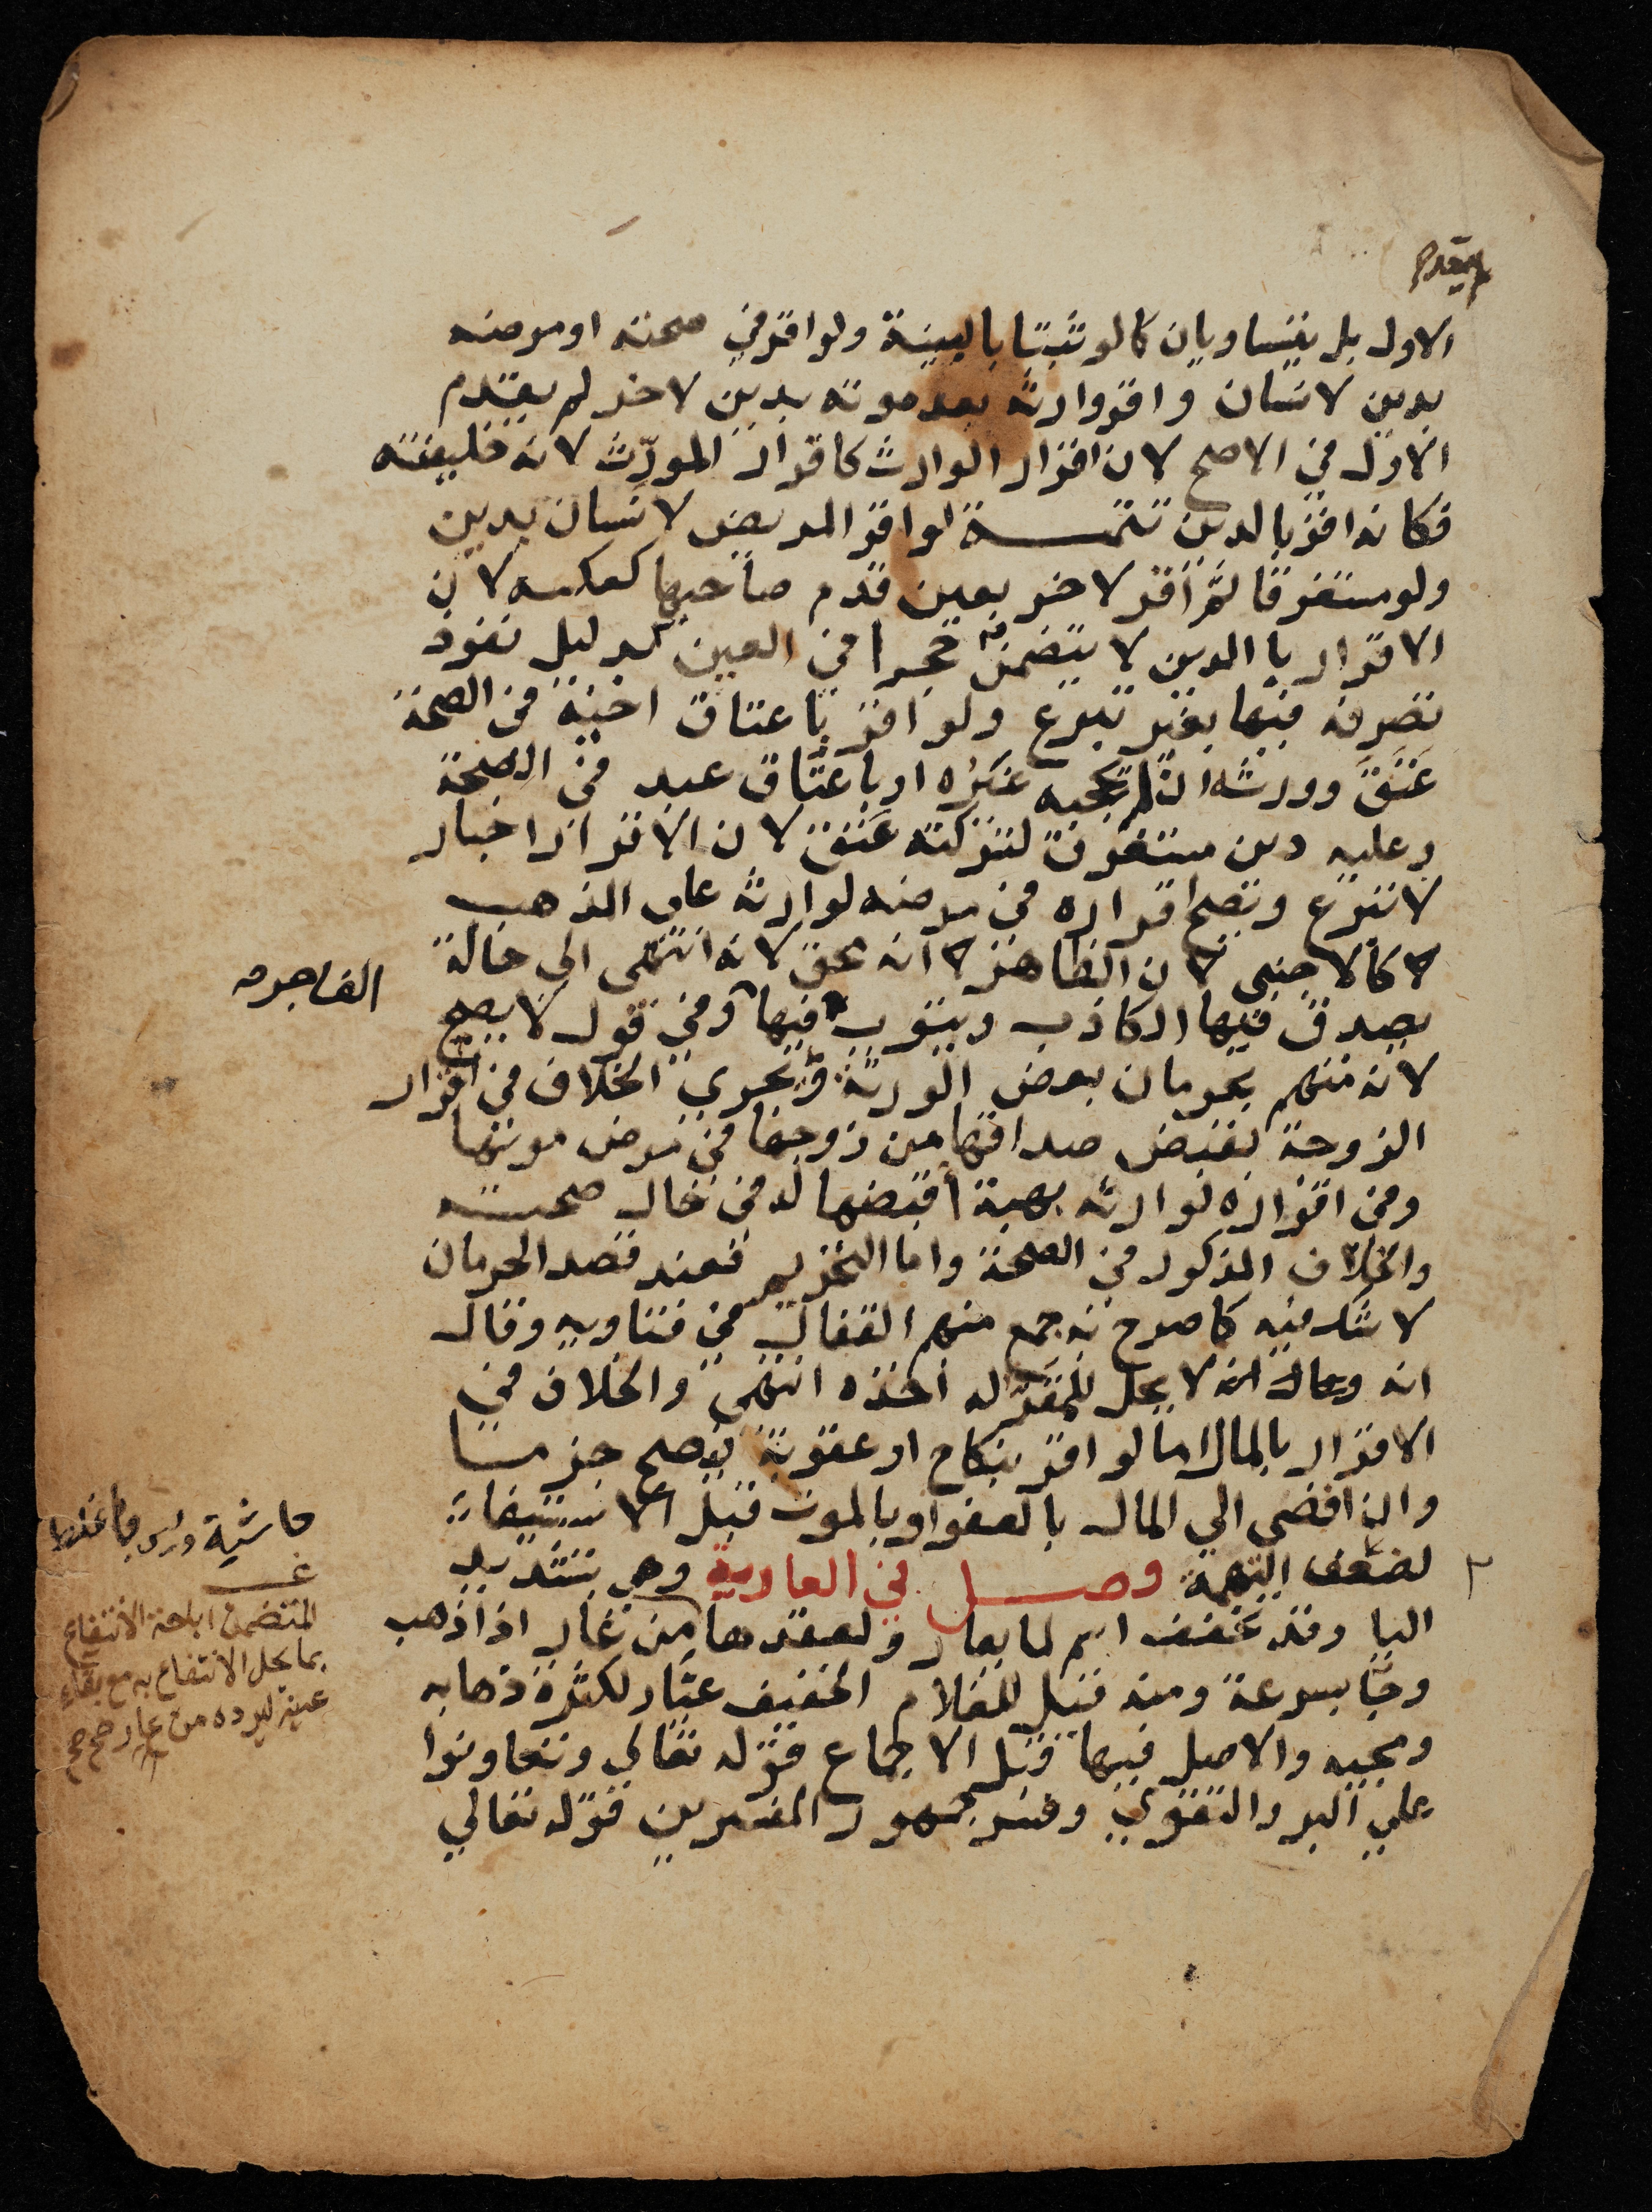 يتقدم
الاول بل يتساويان كما لو ثبتا بالبينة ولو اقر في صحته او مرضه
بدين لانسان واقر وارثه بعد موته بدين لاخر لم يقدم
الاول في الاصح لان اقرار الوارث كاقرار المورّث لانه خليفته
فكانه اقر بالدين تتمة لو اقر المريض لانسان بدين
ولو مستغرقا ثم اقر لاخر بعين قدم صاحبها كعكسه لان
الاقرار باالدين لا يتضمن حجرا في العين بدليل نفوذ
تصرفه فيها بغير تبرع ولو اقر باعتاق اخيه في الصحة
عَتَقَ وورثه ان لم يحجبه غيره او باعتاق عبد في الصحة
وعليه دين مستغرق لتركته عَتَق لان الاقرار اخبار
لا تبرع ويصح اقراره في مرضه لوارثه على المذهب
لا كالاجنبي لان الظاهر لا انه محق لانه انتهى الى حالة
يصدق فيها الكاذب ويتوب فيها وفي قول لا يصح
الفاجر صح
لانه متهم بحرمان بعض الورثة ويجري الخلاف في اقرار
الزوجة بقبض صداقها من زوجها في مرض موتها
وفي اقراره لوارثه بهبة اقبضها له في حال صحته
والخلاف المذكور في الصحة واما التحريم فعند قصد الحرمان
لا شك فيه كما صرح به جمع منهم القفال في فتاويه وقال
انه وقال انه لا يحل للمقر له اخذه انتهى والخلاف في
الاقرار بالمال اما لو اقر بنكاح او عقوبة فيصح جزما
وان افضى الي المال بالعفو او بالموت قبل الاستيفاء
لضعف التهمة وصل في العارية وهي بتشديد
اليا وقد تخفف اسم لما يعار ولعقدها من عار اذا ذهب
وجا بسرعة ومنه قيل للغلام الخفيف عيّار لكثرة ذهابه
ومجيه والاصل فيها قبل الاجماع قوله تعالي وتعاونوا
علي البر والتقوي وفسر جمهور المفسرين قوله تعالي
حاشية
المتضمن اباحة الانتفاع
بما يحل الانتفاع به مع بقاء
عينه ليرده من عار صح صح